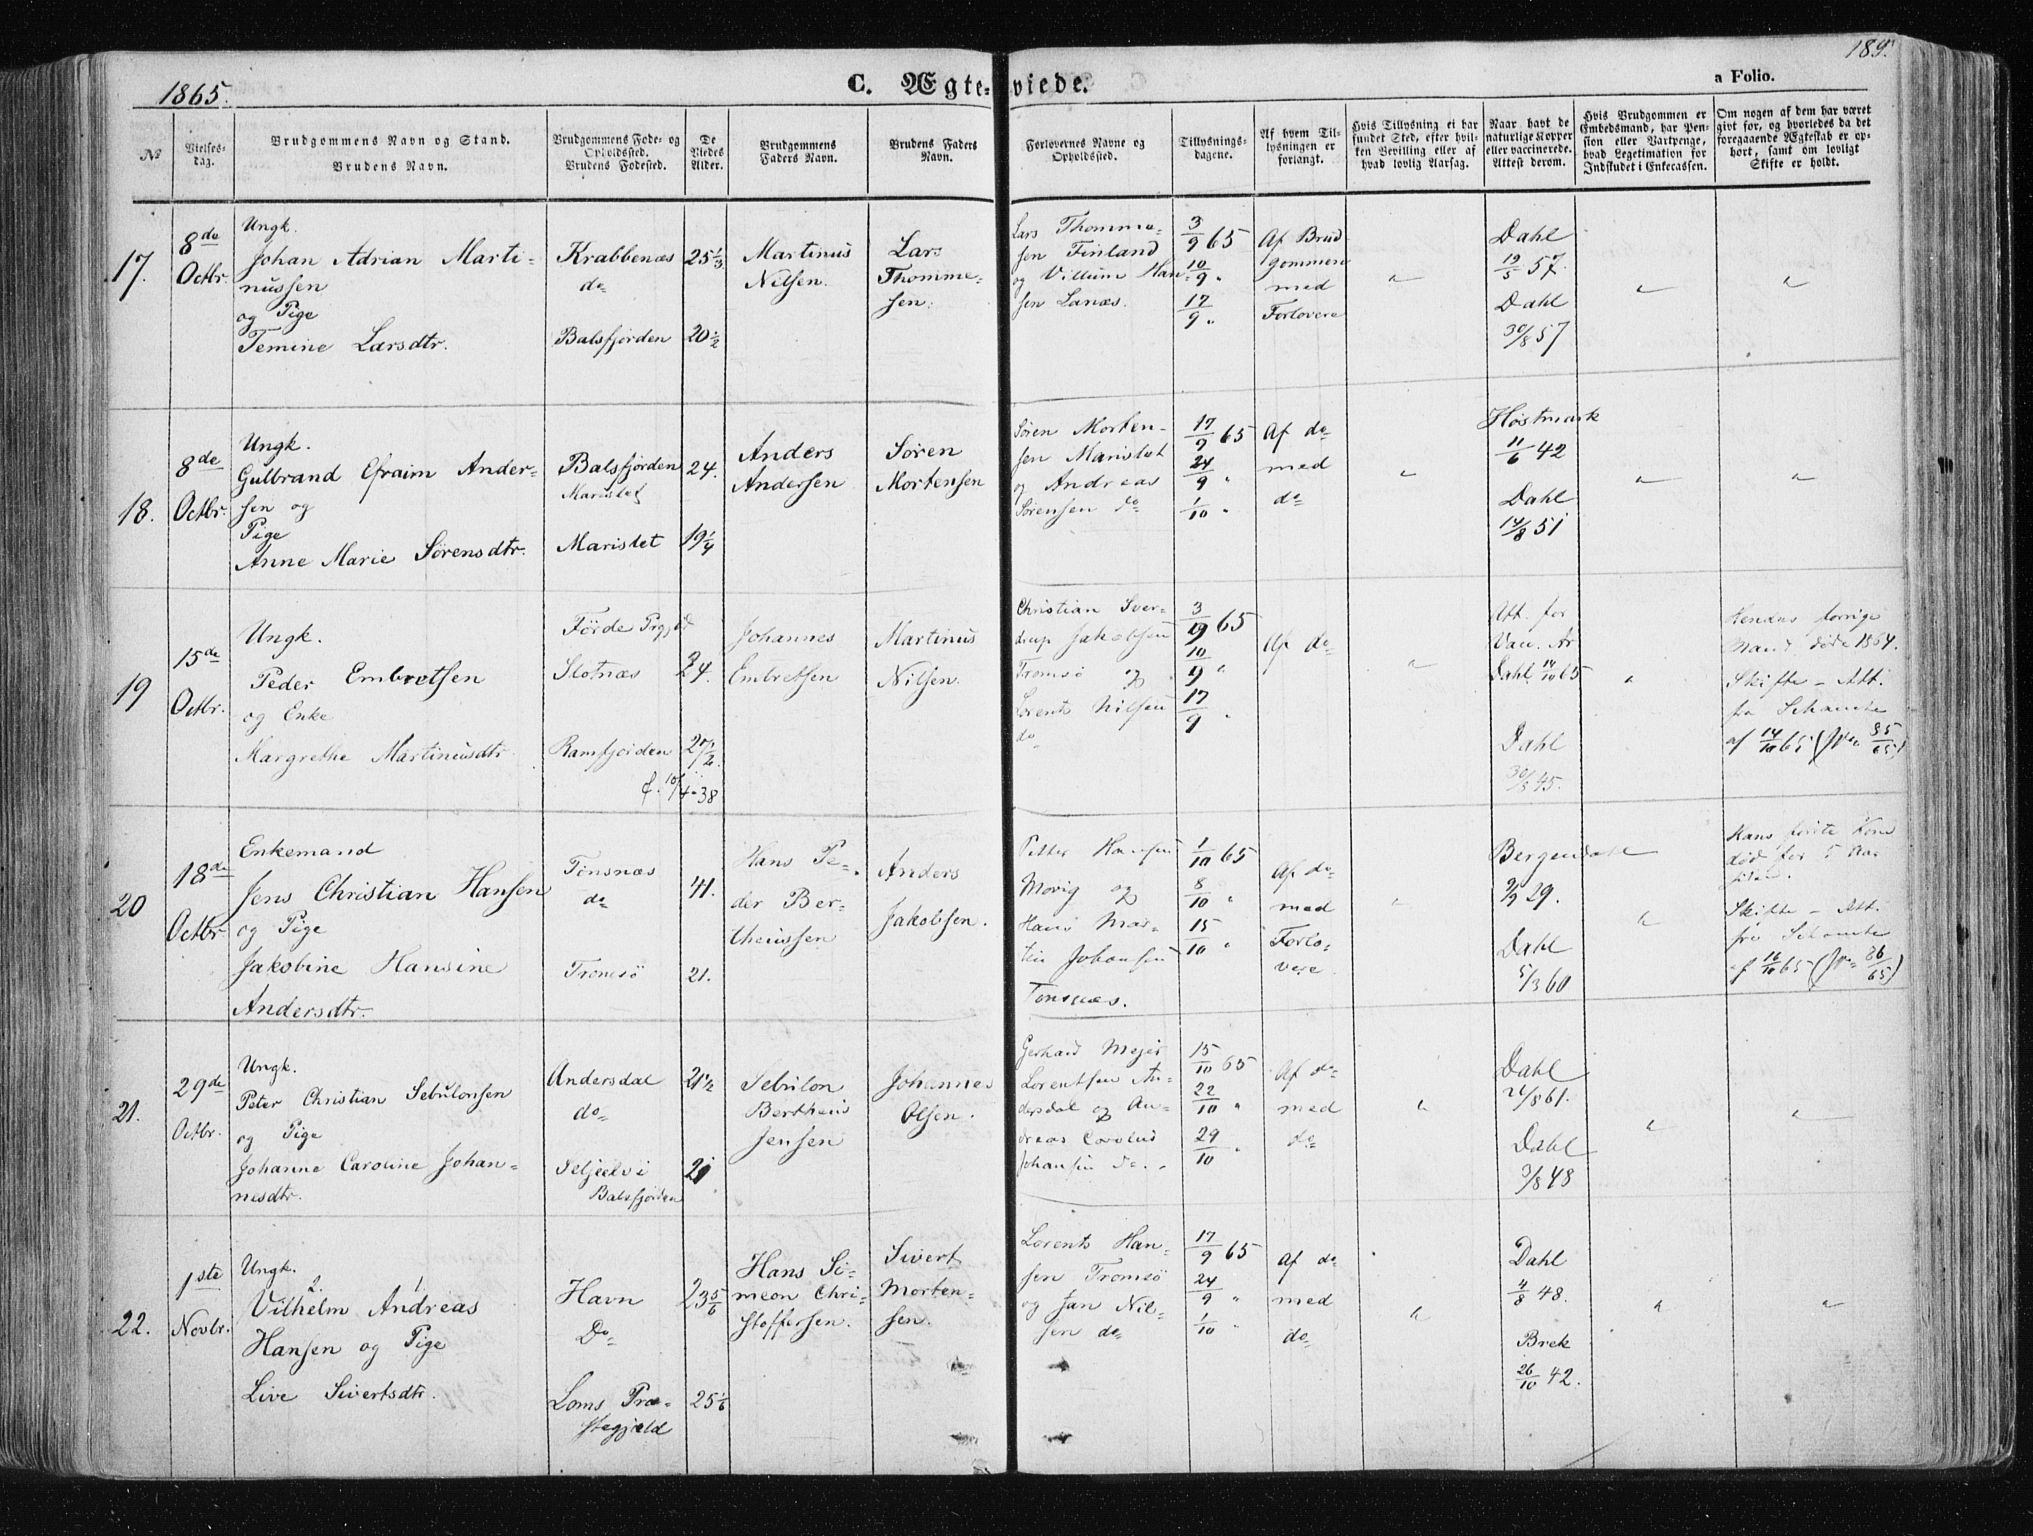 1865.
C. Ægteviede.
189.
a Folio.
№
Vielses-
dag.
Brudgommens Navn og Stand.
Brudens Navn.
Brudgommens Føde- og
Opholdssted.
Brudens Fødested.
De
Viedes
Alder.
Brudgommens
Faders Navn.
Brudens Faders
Navn.
Forlovernes Navne og
Opholdssted.
Tillysnings-
dagene.
Af hvem Til-
lysningen er
forlangt.
Hvis Tillysning ei har
fundet Sted, efter hvil-
ken Bevilling eller af
hvad lovlig Aarsag.
Naar havt de
naturlige Kopper
eller vaccinerede.
Attest derom.
Hvis Brudgommen er
Embedsmand, har Pen-
sion eller Vartpenge,
hvad Legetimation for
Indskudet i Enkecassen.
Om nogen af dem har været
gift før, og hvorledes da det
foregaaende Ægteskab er op-
hørt, samt om lovligt
Skifte er holdt.
17.
8de
Octbr.
Ungk.
Johan Adrian Marti-
nussen
og Pige
Temine Larsdtr.
Krabbenæs
do
Balsfjorden
25 1/3
20 1/2
Martinus
Nilsen.
Lars
Thomme-
sen.
Lars Thomme-
sen Finland
og Villum Han-
sen Lanæs.
3/9 65
10/9 "
17/9 "
Af Brud-
gommen
med
Forlovere
"
Dahl
19/5 57.
Dahl
30/8 57
"
"
18.
8de
Octbr.
Ungk.
Gulbrand Efraim Ander-
sen og
Pige
Anne Marie Sørensdtr.
Balsfjorden
Maristet
Maristet
24.
19 1/4
Anders
Andersen
Søren
Mortensen
Søren Morten-
sen Maristet
og Andreas
Sørensen do
17/9 65
24/9 "
1/10 "
Af do
med
do
"
Høstmark
11/6 42
Dahl
14/8 51
"
"
19
15de
Octbr.
Ungk.
Peder Embretsen
og Enke
Margrethe Martinusdtr.
Førde Prgjld
Slotnæs
Ramfjorden
24.
27 1/2.
f. 10/4-38
Johannes
Embretsen
Martinus
Nilsen.
Christian Sver-
drup Jakobsen
Tromsø og
Lorents Nilsen
do
3/9 65
10/9 "
17/9 "
Af do
"
Att. for
Vac. Af
Dahl 14/10 65
Dahl
30/8 45.
"
Hendes forrige
Mand døde 1864.
Skifte-Att.
fra
af 14/10 65 (Jr. 85/65)
20
18de
Octbr.
Enkemand
Jens Christian Hansen
og Pige
Jakobine Hansine
Andersdtr.
Tønsnæs
do
Tromsö
41.
21.
Hans Pe-
der Ber-
theussen
Anders
Jakobsen.
Petter Hansen
Movig og
Hans Mar-
tin Johansen
Tønsnæs.
1/10 65
8/10 "
15/10 "
Af do
med
Forlo-
vere.
"
Bergendahl
9/9 29.
Dahl
5/3 60
"
Hans første Kone
død for 5 Aar
siden.
Skifte-Att.
fra
af 16/10 65 (Jr. 86/65)
21.
29de
Octbr.
Ungk.
Peter Christian Sebulonsen
og Pige
Johanne Caroline Johan-
nesdtr.
Andersdal
do
Seljeelvi
Balsfjorden
21 1/2
21
Sebulon
Bertheus
Jensen
Johannes
Olsen.
Gerhard Mejer
Lorentsen An-
dersdal og An-
dreas Carolus
Johansen do.
15/10 65
22/10 "
29/10 "
Af do
med
do
"
Dahl
21/8 61.
Dahl
3/8 48
"
"
22.
1ste
Novbr.
Ungk.
2. 1
Vilhelm Andreas
Hansen og Pige
Live Sivertsdtr.
Havn
Do
Loms Præ-
stegjæld
23 5/6
25 1/6
Hans Si-
meon Chri-
stoffersen.
Sivert
Morten-
sen.
Lorents Han-
sen Tromsö
og Jan Nil-
sen do
17/9 65
24/9 "
1/10 "
Af do
med
do
"
Dahl
4/8 48.
Brek
26/10 42.
"
"